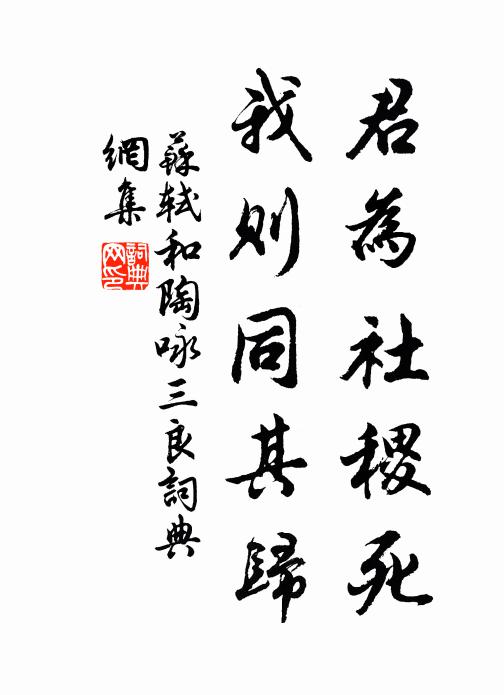 君為社稷死
我則同其歸
蘇軾和陶咏三良詞典
網集
詞典
网印